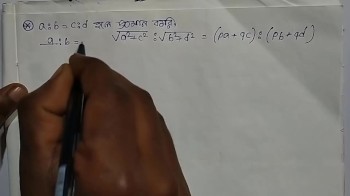 ⓧ a:b = c:d হলে প্রমাণ করি,
√a²=c² : √b²=d² = (pa+qc) : (pb+qd)
a : b =